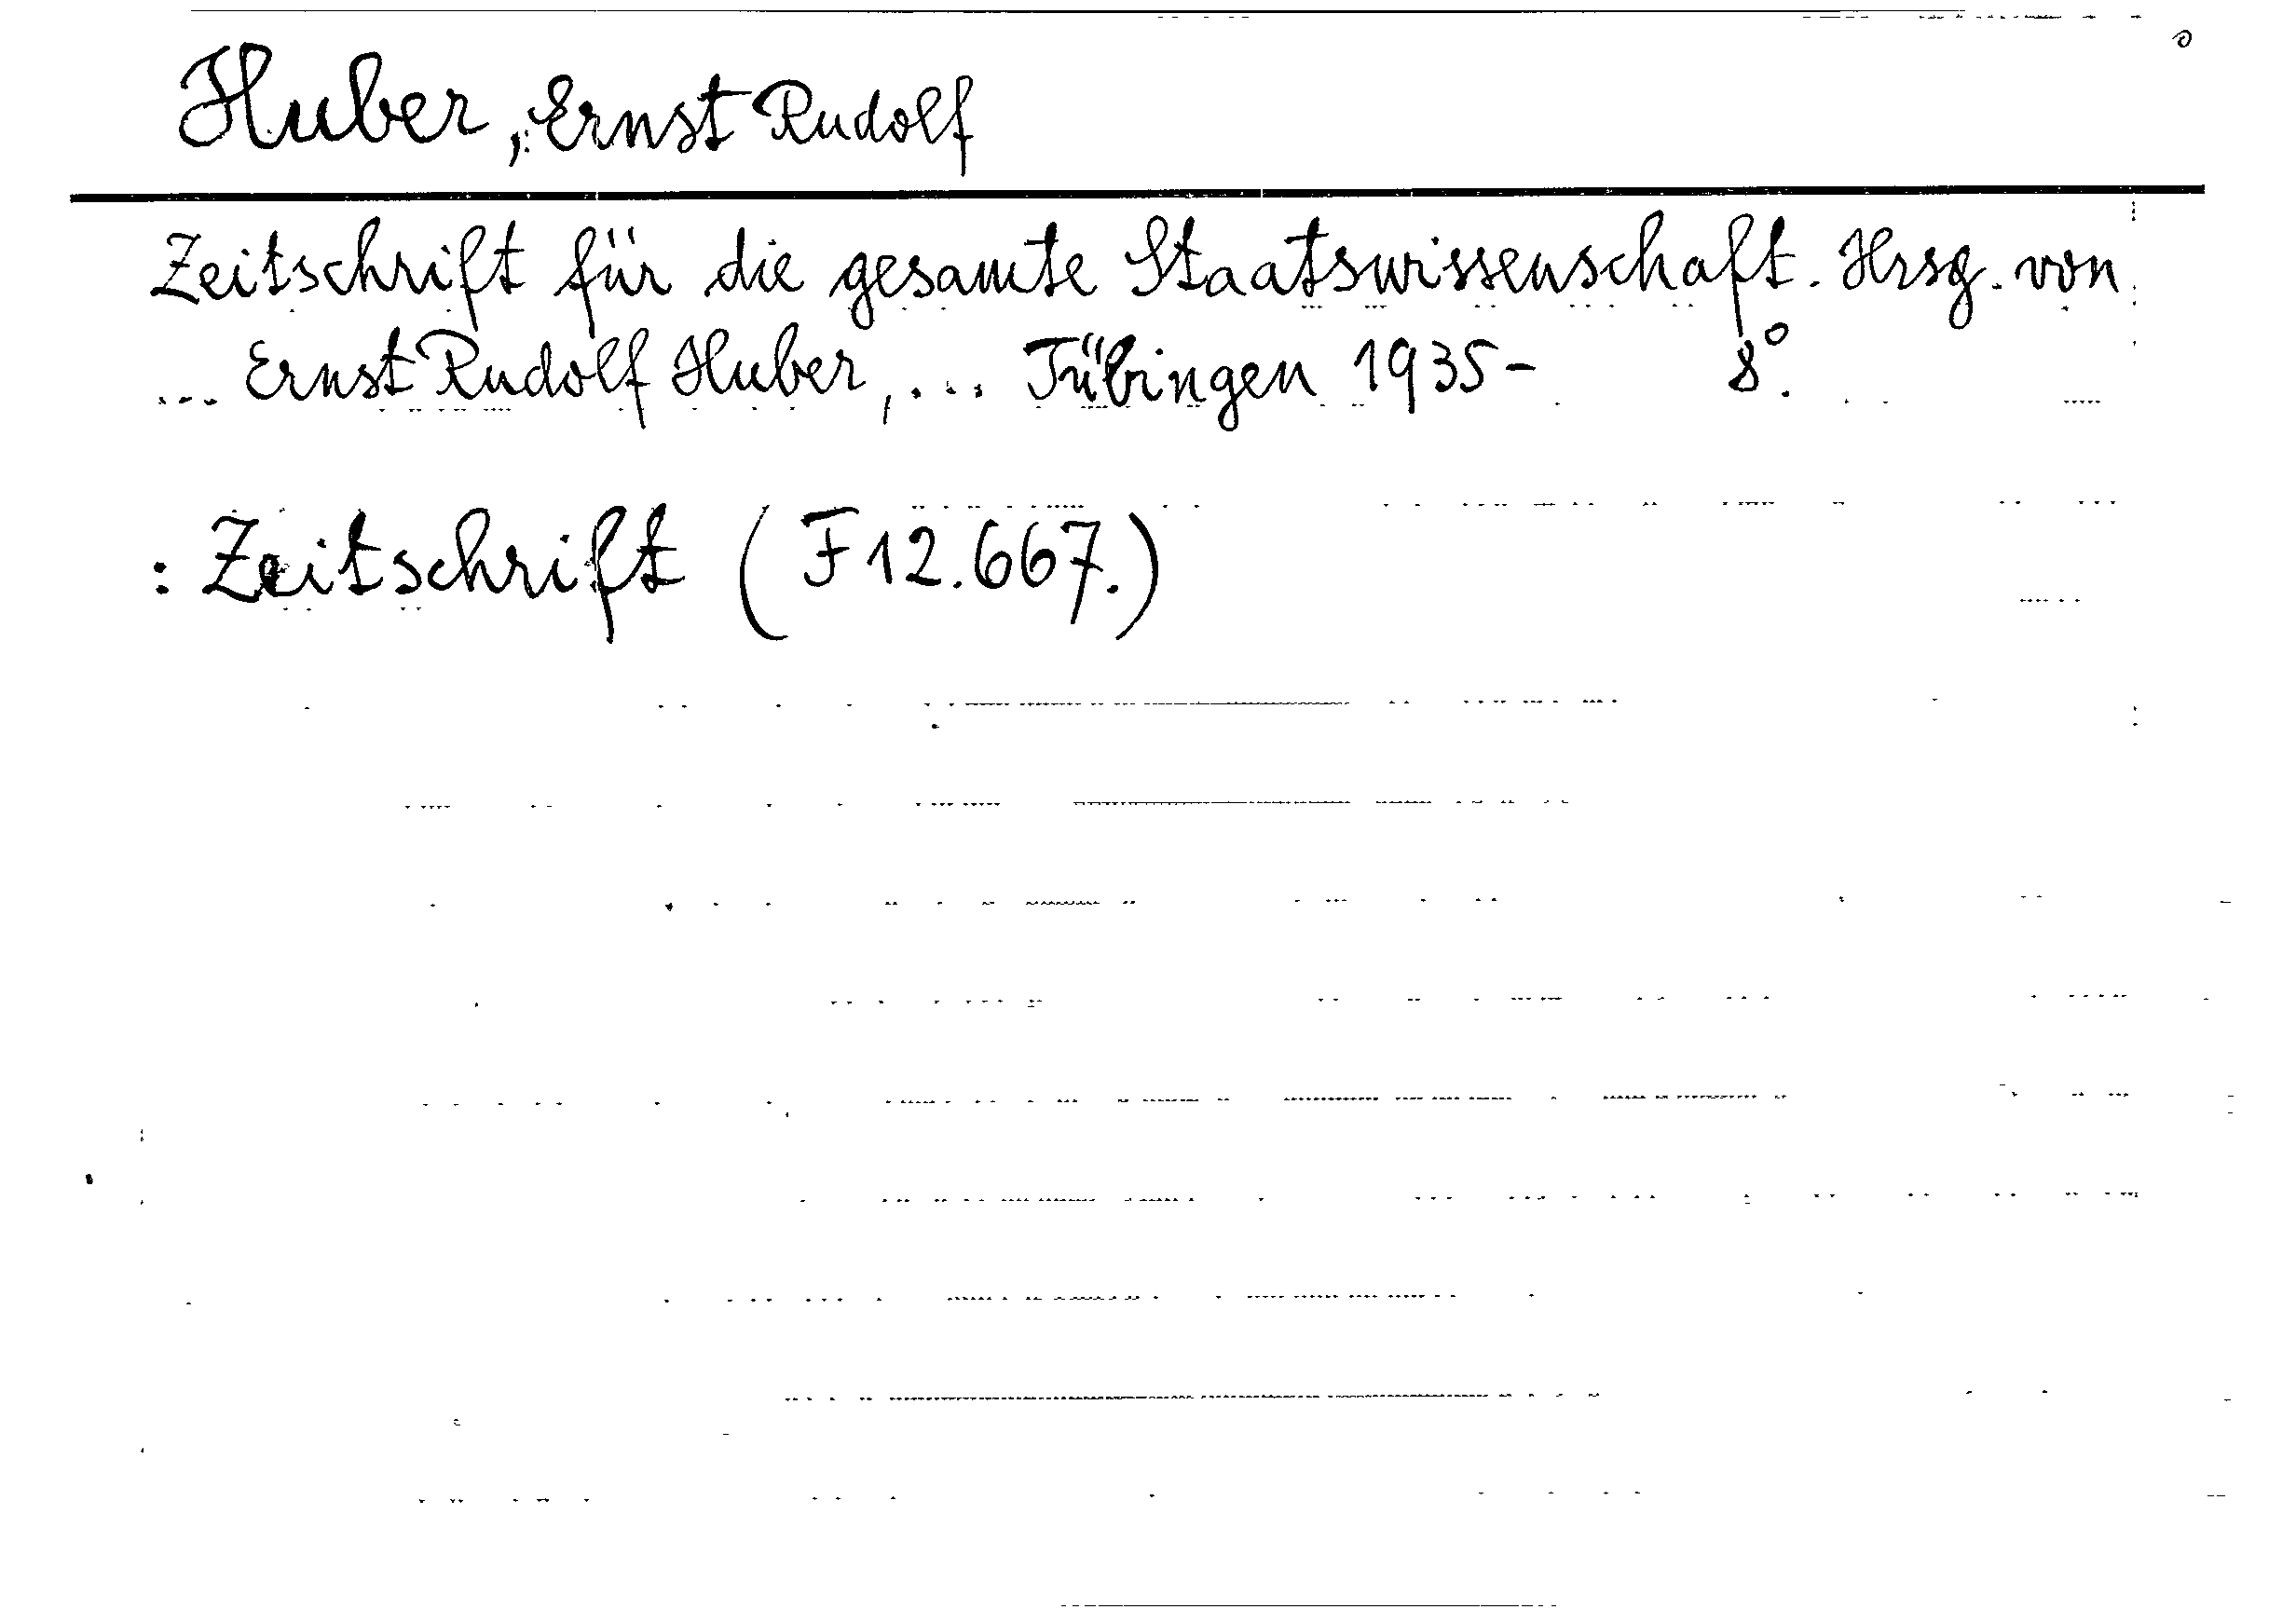 Huber, Ernst Rudolf
Zeitschrift für die gesamte Staatswissenschaft. Hrsg. von
... Ernst Rudolf Huber, ... Tübingen 1935- 8°.
: Zeitschrift (F 12.667.)